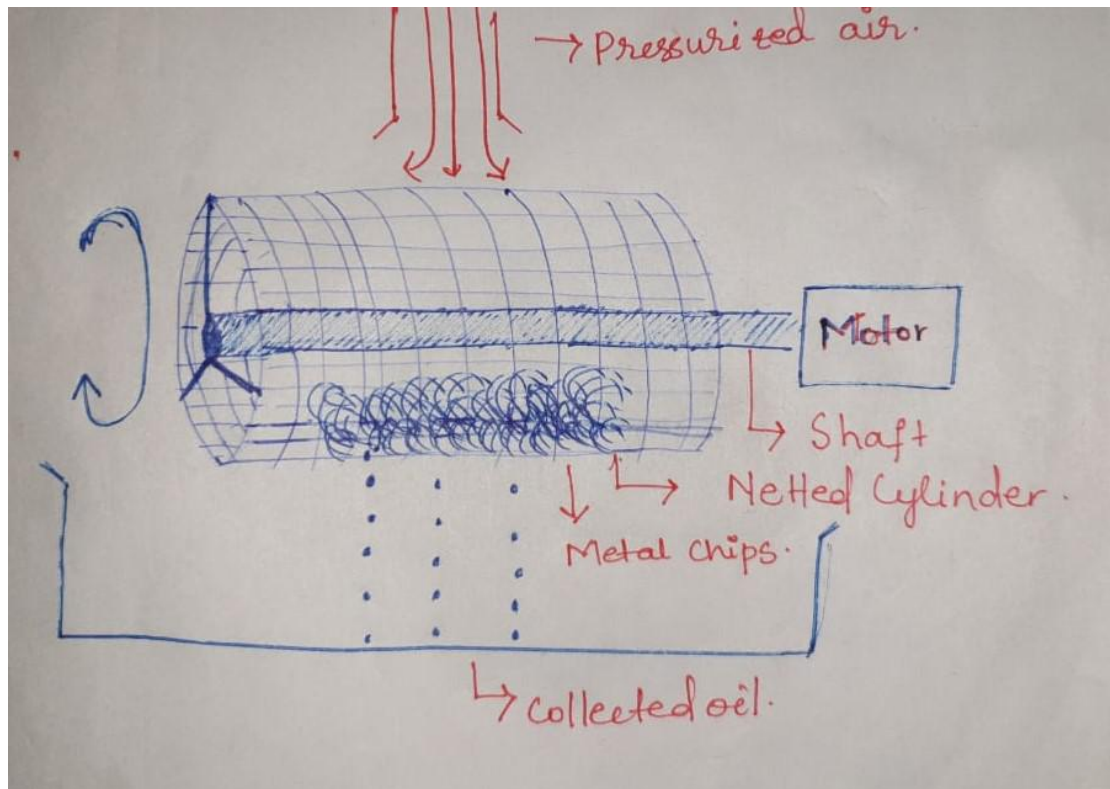 Pressurized air.
Motor
Shaft
Netted Cylinder.
Metal chips.
Collected oil.